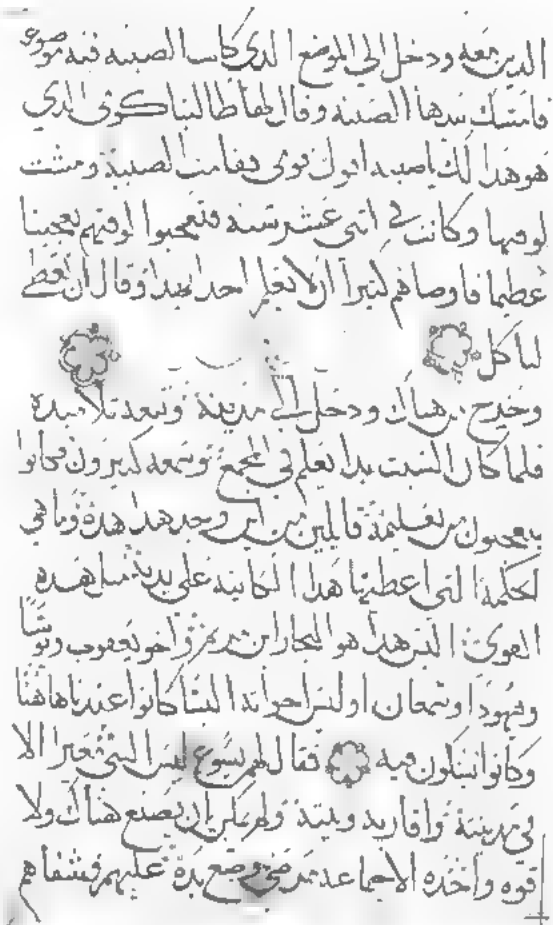 الذين معه ودخل الى الموضع الذي كانت الصبية فيه موضوعه
فامسك بيدها الصبية وقال لها طاليثا كومي الذي
هو هذا لك يا صبية اقول قومي فقامت الصبية ومشت
لوقتها وكانت في اثنى عشر سنه فتعجبوا لوقتهم تعجبا
عظيما فاوصاهم كثيرا ان لا يعلم احدا بهذا وقال ان تعطى
لتاكل
وخرج من هناك ودخل الى مدينته وتبعه تلاميذه
فلما كان السبت بدا يعلم في المجمع وسمعه كثيرون فكانوا
يعجبون من تعليمه قائلين من اين وجد هذا هذه وما هي
الحكمة التي اعطيها هذا الكاينه على يديه مثل هذه
القوى اليس هذا هو النجار ابن مريم واخو يعقوب ويوسا
ويهودا وشمعان اوليس اخواته النسا كانوا عندنا هاهنا
وكانوا يشكون فيه فقال لهم يسوع ليس النبي حقيرا الا
في مدينته واقاربه وبيته ولم يكن ان يصنع هناك ولا
قوه واحده الا جماعه مرضى وضع يده عليهم فشفاهم